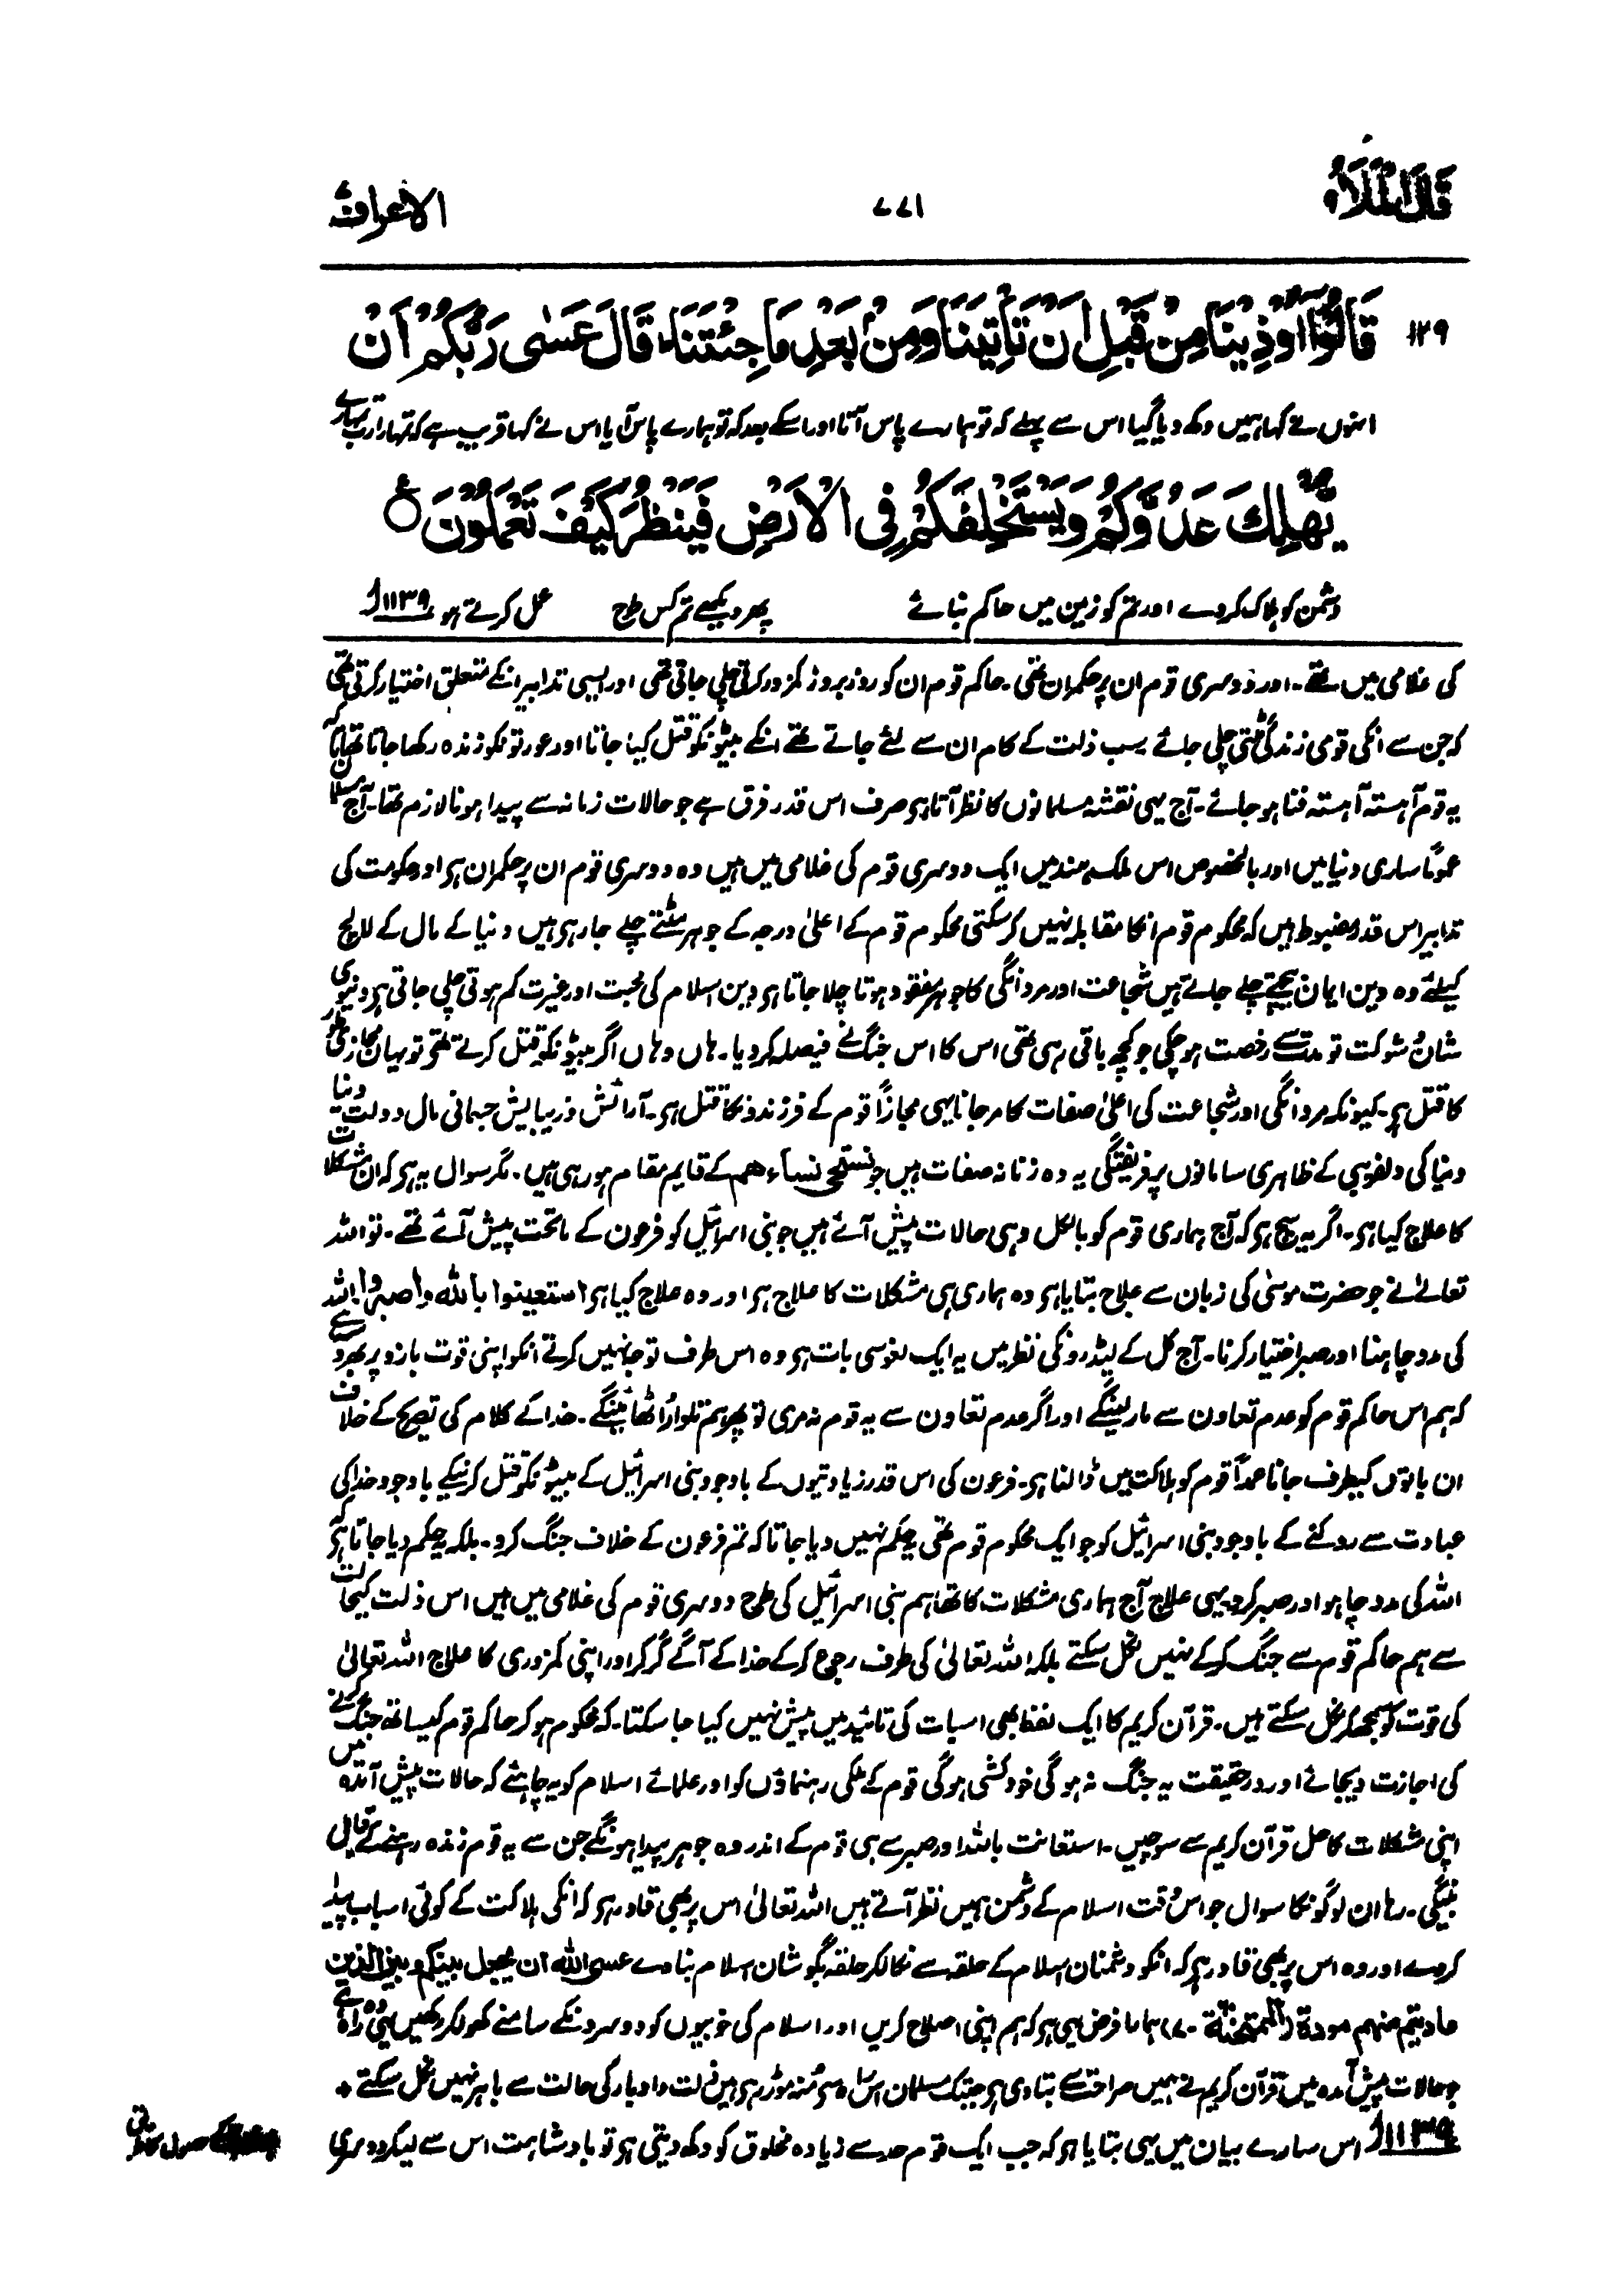 قَالَ الْمَلَاُ
۷۷۱
الاعراف
۱۲۹ قَالُوْٓا اُوْذِيْنَا مِنْ قَبْلِ اَنْ تَاْتِيَنَا وَمِنْۢ بَعْدِ مَا جِئْتَنَا ؕ قَالَ عَسٰى رَبُّكُمْ اَنْ
انہوں نے کہا ہمیں دکھ دیا گیا اس سے پہلے کہ تو ہمارے پاس آتا اور اسکے بعد کہ تو ہمارے پاس آیا اس نے کہا قریب ہے کہ تمہارا رب تمہارے
يُّهْلِكَ عَدُوَّكُمْ وَيَسْتَخْلِفَكُمْ فِى الْاَرْضِ فَيَنْظُرَ كَيْفَ تَعْمَلُوْنَ ○ ع
دشمن کو ہلاک کردے اور تم کو زمین میں حاکم بنائے پھر دیکھے تم کس طرح عمل کرتے ہو ۱۱۳۹
کی غلامی میں تھے۔ اور دوسری قوم ان پر حکمران تھی۔ حاکم قوم ان کو روز بروز کمزور کرتی چلی جاتی تھی اور ایسی تدابیر انکے متعلق اختیار کرتی تھی
کہ جن سے انکی قومی زندگی مٹتی چلی جائے سب ذلت کے کام ان سے لئے جاتے تھے انکے بیٹونکو قتل کیا جاتا اور عورتونکو زندہ رکھا جاتا تھا تاکہ
یہ قوم آہستہ آہستہ فنا ہوجائے۔ آج یہی نقشہ مسلمانوں کا نظر آتا ہی صرف اس قدر فرق ہے جو حالات زمانہ سے پیدا ہونا لازم تھا۔ آج مسلمان
عموماً ساری دنیا میں اور بالخصوص اس ملک ہند میں ایک دوسری قوم کی غلامی میں ہیں وہ دوسری قوم ان پر حکمران ہی اور حکومت کی
تدابیر اس قدر مضبوط ہیں کہ محکوم قوم انکا مقابلہ نہیں کرسکتی محکوم قوم کے اعلیٰ درجہ کے جوہر مٹتے چلے جارہی ہیں دنیا کے مال کے لالچ
کیلئے وہ دین ایمان بیچتے چلے جاتے ہیں شجاعت اور مردانگی کا جوہر مفقود ہوتا چلا جاتا ہی دین اسلام کی محبت اور غیرت کم ہوتی چلی جاتی ہی دنیوی
شان شوکت تو مدت سے رخصت ہوچکی جو کچھ باقی رہی تھی اس کا اس جنگ نے فیصلہ کردیا۔ ہاں وہاں اگر بیٹونکو قتل کرتے تھی تو یہاں مجازی طور
کا قتل ہی۔ کیونکہ مردانگی اور شجاعت کی اعلیٰ صفات کا مرجانا یہی مجازاً قوم کے فرزندونکا قتل ہی۔ آرائش و زیبایش جسمانی مال و دولت دنیا
دنیا کی دلفریبی کے ظاہری سامانوں پر فریفتگی یہ وہ زنانہ صفات ہیں جو نستحی نساءھم کے قایم مقام ہورہی ہیں۔ مگر سوال یہ ہی کہ ان مشکلات
کا علاج کیا ہی۔ اگر یہ سچ ہی کہ آج ہماری قوم کو بالکل وہی حالات پیش آئے ہیں جو بنی اسرائیل کو فرعون کے ماتحت پیش آئے تھے۔ تو اللہ
تعالےٰ نے جو حضرت موسیٰ کی زبان سے علاج بتایا ہی وہ ہماری ہی مشکلات کا علاج ہی اور وہ علاج کیا ہی استعینوا باللہ واصبروا اللہ
کی مدد چاہنا اور صبر اختیار کرنا۔ آج کل کے لیڈرونکی نظر میں یہ ایک لغو سی بات ہی وہ اس طرف توجہ نہیں کرتے انکو اپنی قوت بازو پر بھروسہ ہے
کہ ہم اس حاکم قوم کو عدم تعاون سے مارلینگے اور اگر عدم تعاون سے یہ قوم نہ مری تو پھر ہم تلوار اٹھائینگے۔ خدا کے کلام کی تصریح کے خلاف
ان باتوں کیطرف جانا عمداً قوم کو ہلاکت میں ڈالنا ہی۔ فرعون کی اس قدر زیادتیوں کے باوجود بنی اسرائیل کے بیٹونکو قتل کرنیکے باوجود خدا کی
عبادت سے روکنے کے باوجود بنی اسرائیل کو جو ایک محکوم قوم تھی یہ حکم نہیں دیا جاتا کہ تم فرعون کے خلاف جنگ کرو۔ بلکہ یہ حکم دیا جاتا ہی کہ
اللہ کی مدد چاہو اور صبر کرو یہی علاج آج ہماری مشکلات کا تھا ہم بنی اسرائیل کی طرح دوسری قوم کی غلامی میں ہیں اس ذلت کیحالت
سے ہم حاکم قوم سے جنگ کرکے نہیں نکل سکتے بلکہ اللہ تعالیٰ کی طرف رجوع کرکے خدا کے آگے گر کر اور اپنی کمزوری کا علاج اللہ تعالیٰ
کی قوت کو سمجھکر نکل سکتے ہیں۔ قرآن کریم کا ایک لفظ بھی اسبات کی تائید میں پیش نہیں کیا جاسکتا۔ کہ محکوم ہوکر حاکم قوم کیساتھ جنگ کرنے
کی اجازت دیجائے اور درحقیقت یہ جنگ نہ ہوگی خودکشی ہوگی قوم کے ملکی رہنماؤں کو اور علمائے اسلام کو یہ چاہئے کہ حالات پیش آمدہ میں
اپنی مشکلات کا حل قرآن کریم سے سوچیں۔ استعانت باللہ اور صبر سے ہی قوم کے اندر وہ جوہر پیدا ہونگے جن سے یہ قوم زندہ رہنے کے قابل
بنیگی۔ رہا ان لوگونکا سوال جو اس وقت اسلام کے دشمن ہمیں نظر آتے ہیں اللہ تعالیٰ اس پر بھی قادر ہی کہ انکی ہلاکت کے کوئی اسباب پیدا
کردے اور وہ اس پر بھی قادر ہی کہ انکو دشمنان اسلام کے حلقہ سے نکالکر حلقہ بگوشان اسلام بنادے عسی اللہ ان یجعل بینکم و بین الذین
عادیتم منھم مودۃ (الممتحنۃ ۔ ۷) ہمارا فرض یہی ہی کہ ہم اپنی اصلاح کریں اور اسلام کی خوبیوں کو دوسرونکے سامنے کھولکر رکھیں یہی وہ راہ ہے
جو حالات پیش آمدہ میں قرآن کریم نے ہمیں صراحت سے بتادی ہی جبتک مسلمان اس راہ سے منہ موڑ رہی ہیں ذلت و ادبار کی حالت سے باہر نہیں نکل سکتے +
۱۱۳۹ اس سارے بیان میں یہی بتایا ہی کہ جب ایک قوم حد سے زیادہ مخلوق کو دکھ دیتی ہی تو بادشاہت اس سے لیکر دوسری